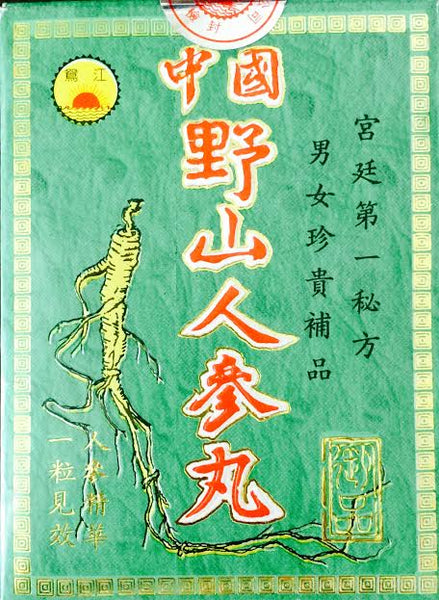 鴛江
中國
野山人參丸
宮廷第一秘方
男女珍貴補品
人參精華
一粒見效
御品
封